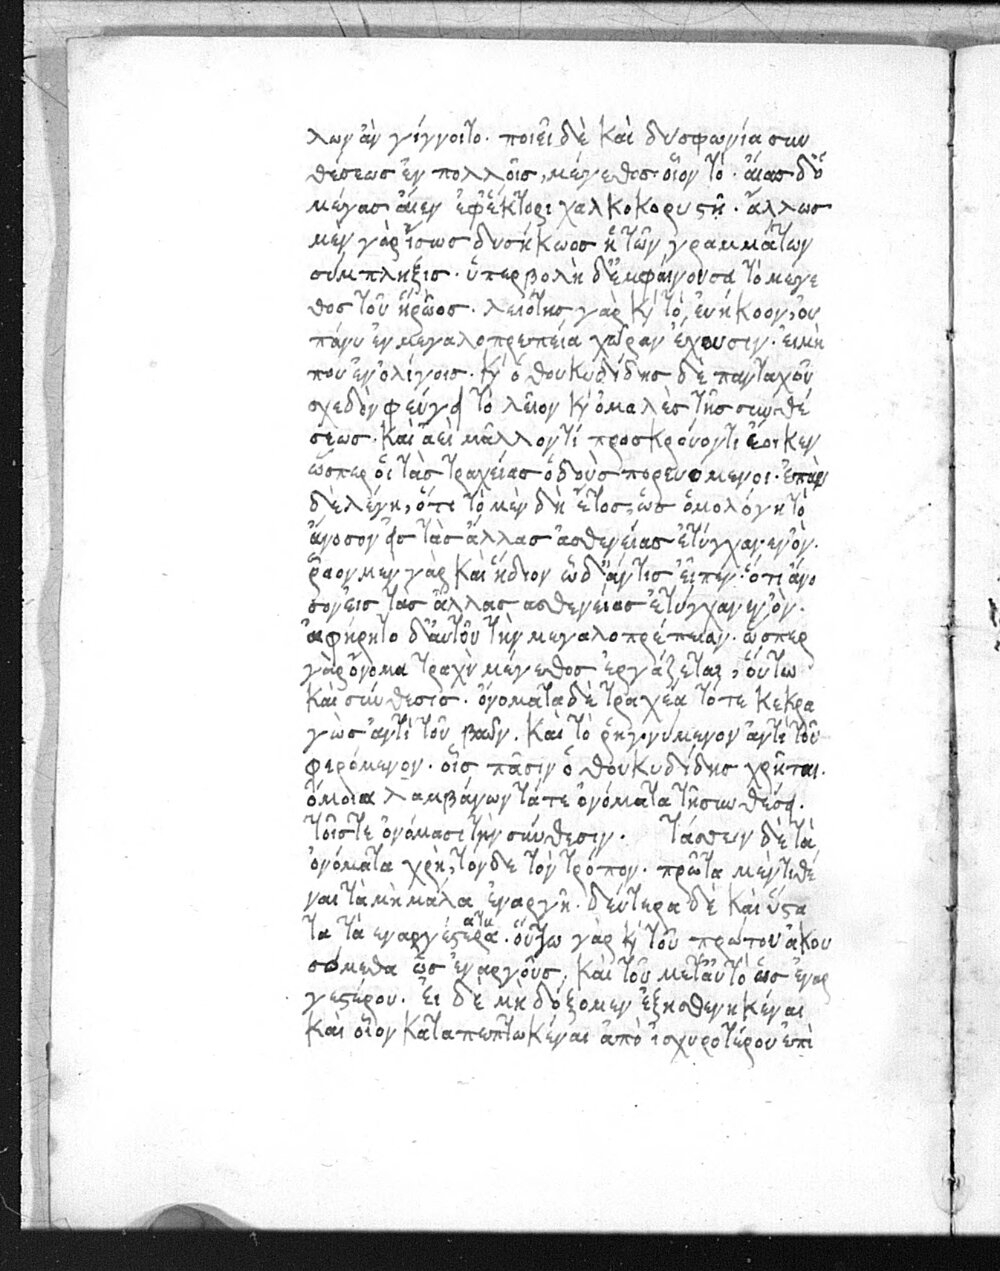 λων ἂν γίγνοιτο. ποιεῖ δὲ καὶ δυσφωνία συν
θέσεως ἐν πολλοῖς, μέγεθος οἷον τὸ. αἴας δ' ὁ
μέγας αἰὲν ἐφ' ἕκτορι χαλκοκορυστῆ. ἄλλως
μὲν γὰρ ἴσως δυσήκοος ἡ τῶν γραμμάτων
σύμπληξις. ὑπερβολὴ δ' ἐμφαίνουσα τὸ μέγε
θος τοῦ ἥρωος. λειότης γὰρ κỳ τὸ, εὐήκοον, οὐ
πάνυ ἐν μεγαλοπρεπεία χώραν ἔχουσιν. εἰ μή
που ἐν ὀλίγοις. κỳ ὁ θουκυδίδης δὲ πανταχοῦ
σχεδὸν φεύγει τὸ λεῖον κỳ ὁμαλὲς τῆς συνθέ
σεως. καὶ ἀεὶ μᾶλλόν τι προσκρούοντι ἔοικεν
ὥσπερ οἱ τὰς τραχείας ὁδοὺς πορευόμενοι. ἐπὰν
δὲ λέγη, ὅτι τὸ μὲν δὴ ἔτος, ὡς ὁμολόγητο
ἄνοσον ἐς τὰς ἄλλας ἀσθενείας ἐτύγχανεν ὄν.
ῥᾶον μὲν γὰρ καὶ ἥδιον ὧδ' ἄν τις εἶπεν. ὅτι ἄνο
σον εἰς τας ἄλλας ασθενείας ἐτύγχανεν ὄν.
ἀφήρητο δ' αὐτοῦ τὴν μεγαλοπρέπειαν. ὥσπερ
γὰρ ὄνομα τραχὺ μέγεθος ἐργάζεται, οὕτω
καὶ σύνθεσις. ὀνόματα δὲ τραχέα τό τε κεκρα
γὼς ἀντὶ τοῦ βοῶν. καὶ τὸ ῥηγνύμενον ἀντὶ τοῦ
φερόμενον. οἷς πᾶσιν ὁ θουκυδίδης χρῆται.
ὅμοια λαμβάνων τά τε ὀνόματα τῇ συνθέσει.
τοῖς τε ὀνόμασι τὴν σύνθεσιν. τάσσειν δὲ τὰ
ὀνόματα χρὴ, τόνδε τὸν τρόπον. πρῶτα μὲν τιθέ
ναι τὰ μὴ μάλα ἐναργῆ. δεύτερα δὲ καὶ ὕστα
τα τὰ εναργέστερα. οὕτω γὰρ κỳ τοῦ πρώτου ἀκου
σόμεθα ὡς ἐναργοῦς, καὶ τοῦ μετ' αὐτὸ ὡς ἐναρ
γεστέρου. εἰ δὲ μὴ δόξομεν ἐξησθενηκέναι
καὶ οἷον καταπεπτωκέναι ἀπὸ ἰσχυροτέρου ἐπὶ